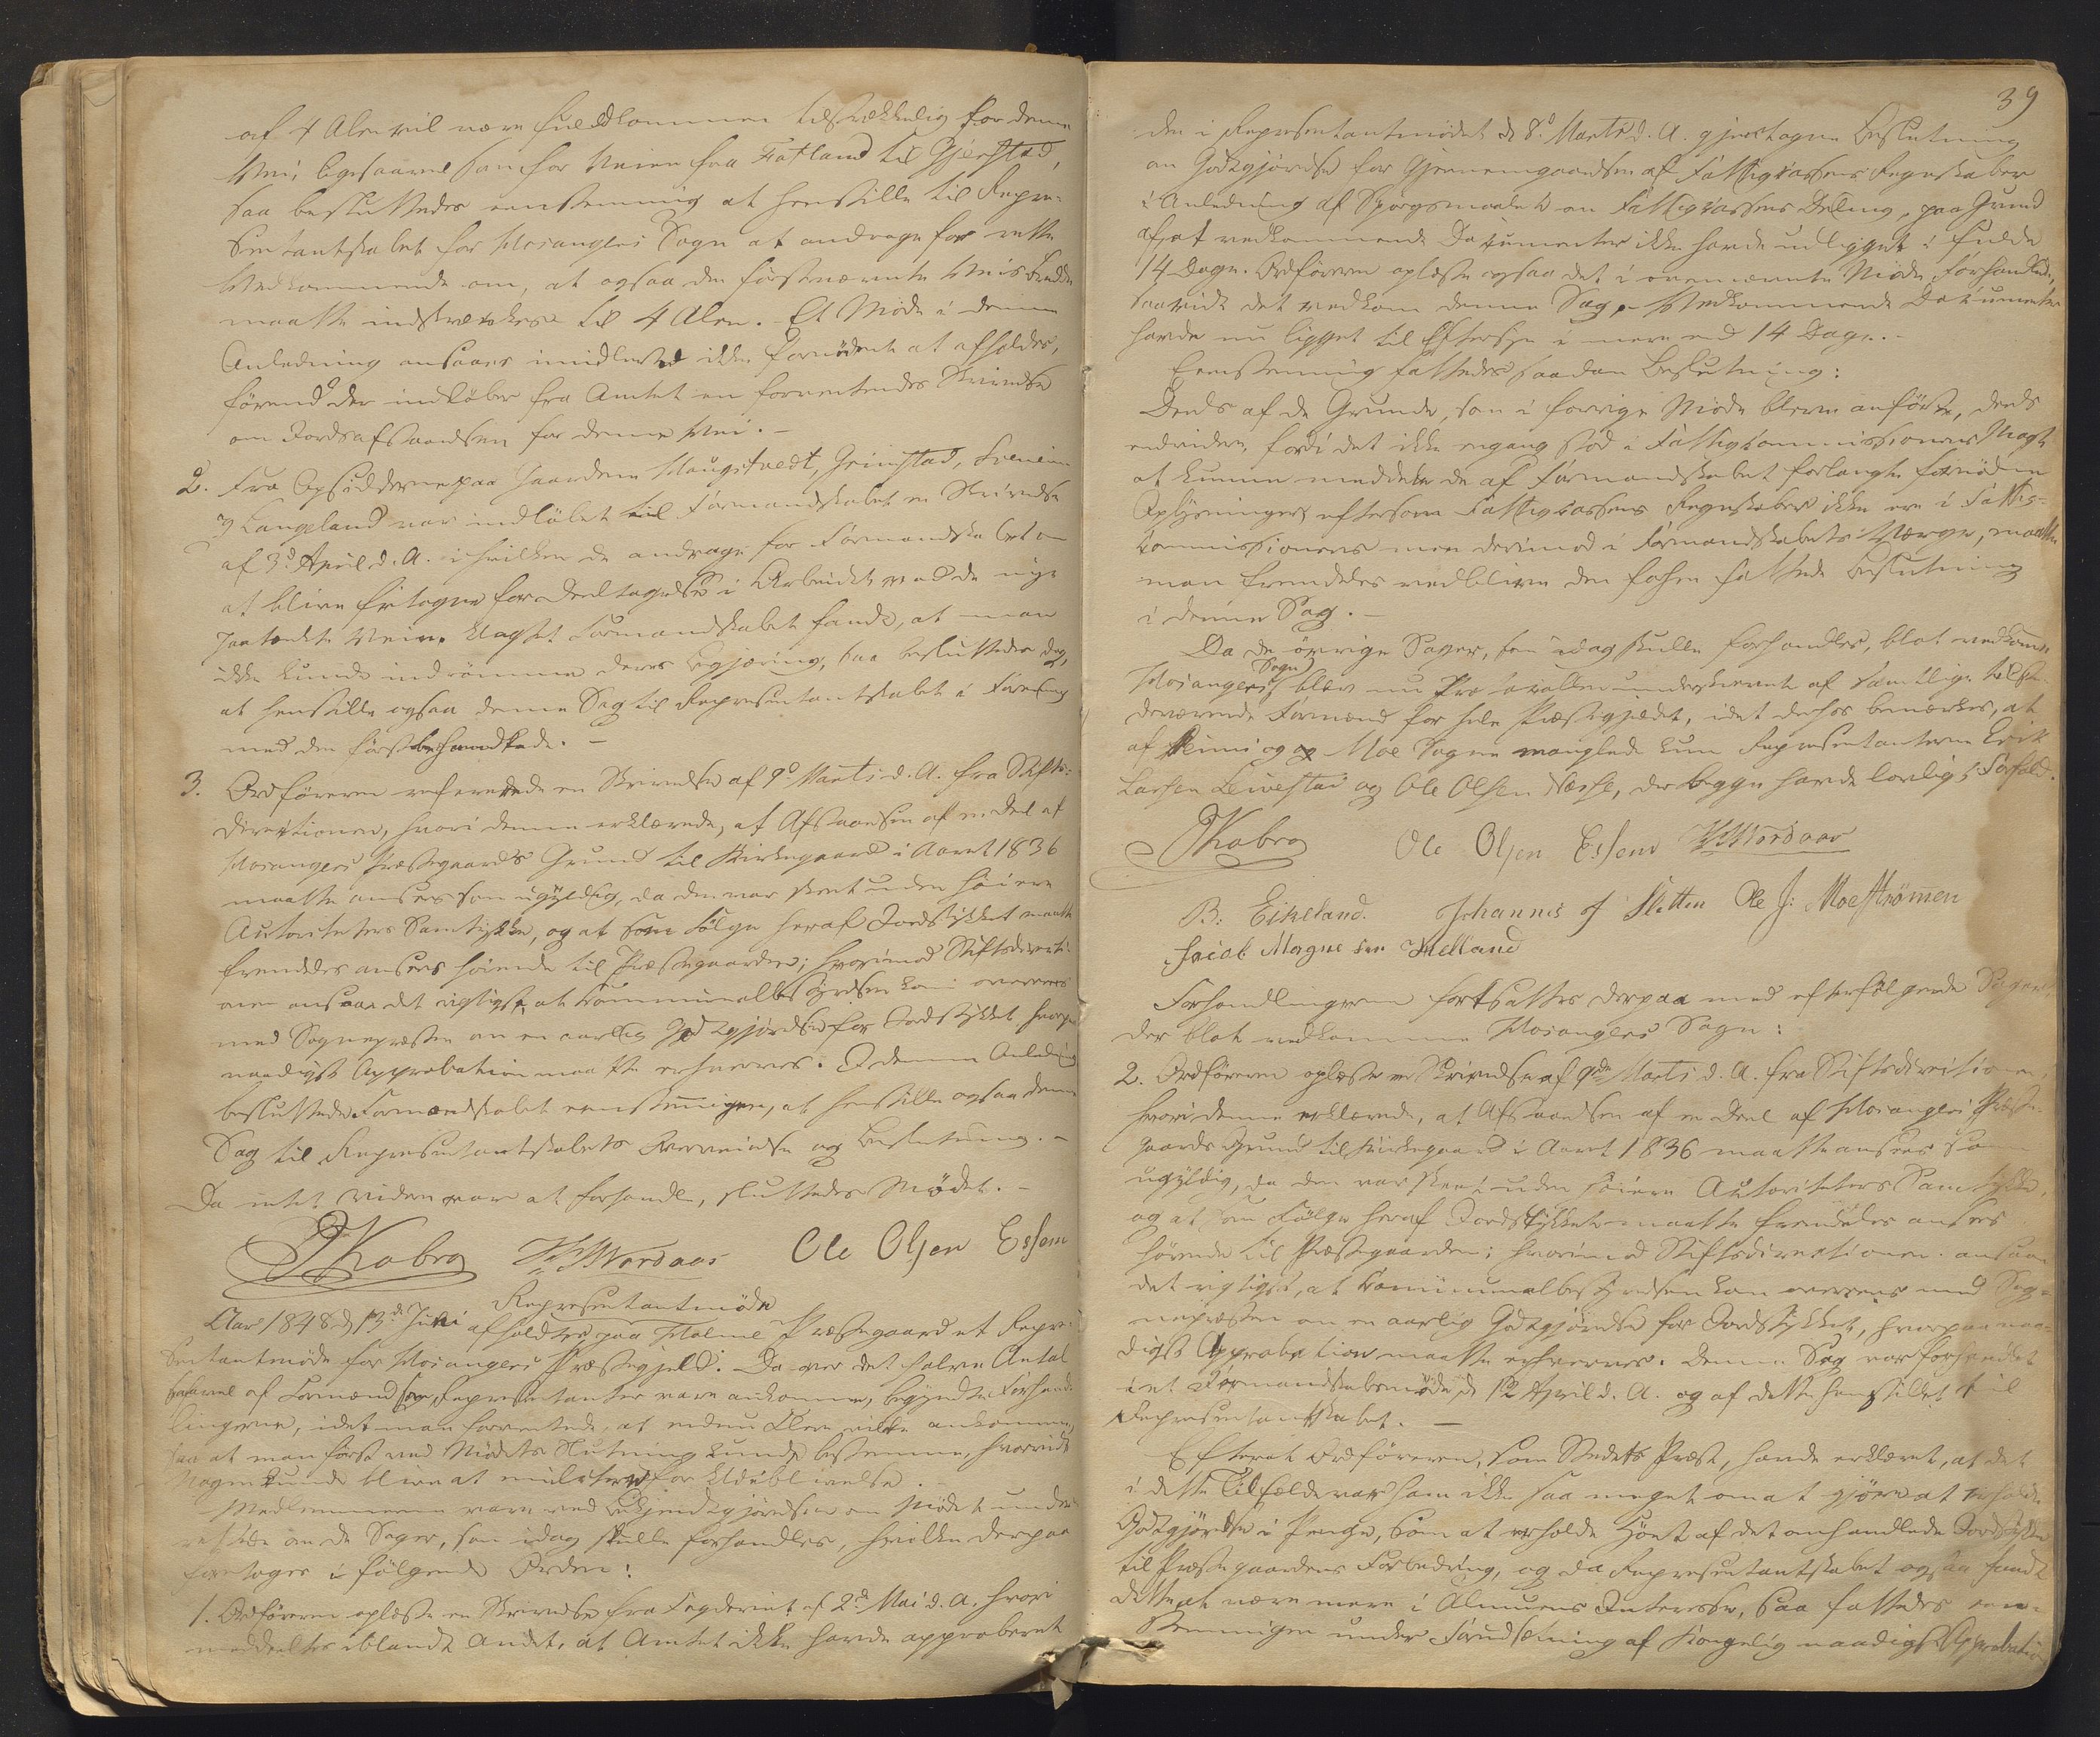 af 4 Alen vil være fuldkommen tilstrækkelig for denne
Vei, ligesaavel som for Veien fra Fatland til Gjerstad,
saa besluttedes eenstemmig at henstille til Repræ-
sentantskabet for Hosangers Sogn at andrage for rette
Vedkommende om, at ogsaa den førstnævnte Veis Bredde
maatte indskrænkes til 4 Alen. Et Møde i denne
Anledning ansaaes imidlertid ikke fornødent at afholdes,
førend der indløber fra Amtet en forventendes Skrivelse
om Jordafstaaelsen for denne Vei. –
2. Fra Opsidderne paa Gaardene Haugstvedt, Grimstad,
og Langeland var indløbet til Formandskabet en Skrivelse
af 3d April d. A. i hvilken de andrage for Formandskabet om
at blive fritagne for Deeltagelse i Arbeidet med de nye
paatænkte Veie. Uagtet Formandskabet fandt, at man
ikke kunde indrømme deres Begjæring, saa besluttedes dog,
at henstille ogsaa denne Sag til Repræsentantskabet i Forening
med den først behandlede. –
3. Ordføreren refererede en Skrivelse af 9d Marts d. A. fra Stifts-
directionen, hvori denne erklærede, at Afstaaelsen af en Deel af
Hosangers Præstegaards Grund til Kirkegaard i Aaret 1836
maatte ansees som ugyldig, da den var skeet uden høiere
Autoriteters Samtykke, og at som Følge heraf Jordstykket maatte
fremdeles ansees hørende til Præstegaarden; hvorimod Stiftsdirecti-
onen ansaae det rigtigst, at Kommunalbestyrelsen kom overeens
med Sognepræsten om en aarlig Godtgjørelse for Jordstykket, hvorpaa
naadigst Approbation maatte erhverves. I denne Anledning
besluttede Formandskabet eenstemmigen, at henstille ogsaa denne
Sag til Repræsentantskabets Overveielse og Beslutning. –
Da intet videre var at forhandle, sluttedes Mødet. –
JKobro Ole Olsen Essem
Repræsentantmøde
Aar 1848 d. 13de Juni afholdtes paa Holme Præstegaard et Repræ-
sentantmøde for Hosangers Præstegjeld. Da over det halve Antal
saavel af Formænd som Repræsentanter vare ankomne, begyndte Forhand-
lingerne, idet man forventede, at endnu Flere vilde ankomme,
saa at man først ved Mødets Slutning kunde bestemme, hvorvidt
Nogen kunde blive at mulctere for Udeblivelse.
Medlemmerne vare ved Bekjendtgjørelse om Mødet under-
rettede om de Sager, som idag skulle forhandles, hvilke derpaa
foretoges i følgende Orden:
1. Ordføreren oplæste en Skrivelse fra Fogderiet af 2d Mai d. A. hvori
meddeeltes iblandt Andet, at Amtet ikke havde approberet
39
den i Repræsentantmødet d. 8d Marts d. A. gjentagne Beslutning
om Godtgjørelse for Gjennemgaaelsen af Fattigkassens Regnskaber
i Anledning af Spørgsmaalet om Fattigkassens Deling, paa Grund
af, at vedkommende Dokumenter ikke havde udligget i fulde
14 Dage. Ordføreren oplæste ogsaa det i ovennævnte Møde Forhandlede,
saavidt det vedkom denne Sag. Vedkommende Dokumenter
havde nu ligget til Eftersyn i mere end 14 Dage. –
Eenstemmig fattedes saadan Beslutning:
Deels af de Grunde, som i forrige Møde bleve anførte, deels
endvidere, fordi det ikke engang stod i Fattigkommissionens Magt
at kunne meddele de af Formandskabet forlangte fornødne
Oplysninger, eftersom Fattigkassens Regnskaber ikke ere i Fattig-
kommissionens men derimod i Formandskabets Værge, maatte
man fremdeles vedblive den forhen fattede Beslutning
i denne Sag. –
Da de øvrige Sager, som idag skulle forhandles, blot vedkomme
Hosangers Sogn, blev nu Protocollen underskrevet af samtlige tilste-
deværende Formænd for hele Præstegjeldet, idet derhos bemærkes, at
af Heimi og Moe Sogne manglede kun Repræsentanterne Erik
Larsen Leivestad og Ole Olsen Næsse, der begge havde lovligt Forfald.
JKobro Ole Olsen Essem
B: Eikeland. Johannes J Sletten Ole J: Moestrømen
Jacob Mognesen Helland
Forhandlingerne fortsattes derpaa med efterfølgende Sager,
der blot vedkomme Hosangers Sogn:
2. Ordføreren oplæste en Skrivelse af 9de Marts d. A. fra Stiftsdirectionen,
hvori denne erklærede, at Afstaaelsen af en Deel af Hosangers Præste-
gaards Grund til Kirkegaard i Aaret 1836 maatte ansees som
ugyldig, da den var skeet uden høiere Autoriteters Samtykke,
og at som Følge heraf Jordstykket maatte fremdeles ansees
hørende til Præstegaarden; hvorimod Stiftsdirectionen ansaae
det rigtigst, at Kommunalbestyrelsen kom overeens med Sog-
nepræsten om en aarlig Godtgjørelse for Jordstykket, hvorpaa naa-
digst Approbation maatte erhverves. Denne Sag var forhandlet
i et Formandskabsmøde d. 12 April d. A. og af dette henstillet til
Repræsentantskabet. –
Efterat Ordføreren, som Stedets Præst, havde erklæret, at det
i dette Tilfælde var ham ikke saa meget om at gjøre at erholde
Godtgjørelse i Penge, som at erholde Høet af det omhandlede Jordstykke
til Præstegaardens Forbedring, og da Repræsentantskabet ogsaa fandt
dette at være mere i Almuens Interesse, saa fattedes een-
stemmigen under Forudsætning af Kongelig naadigst Approbation